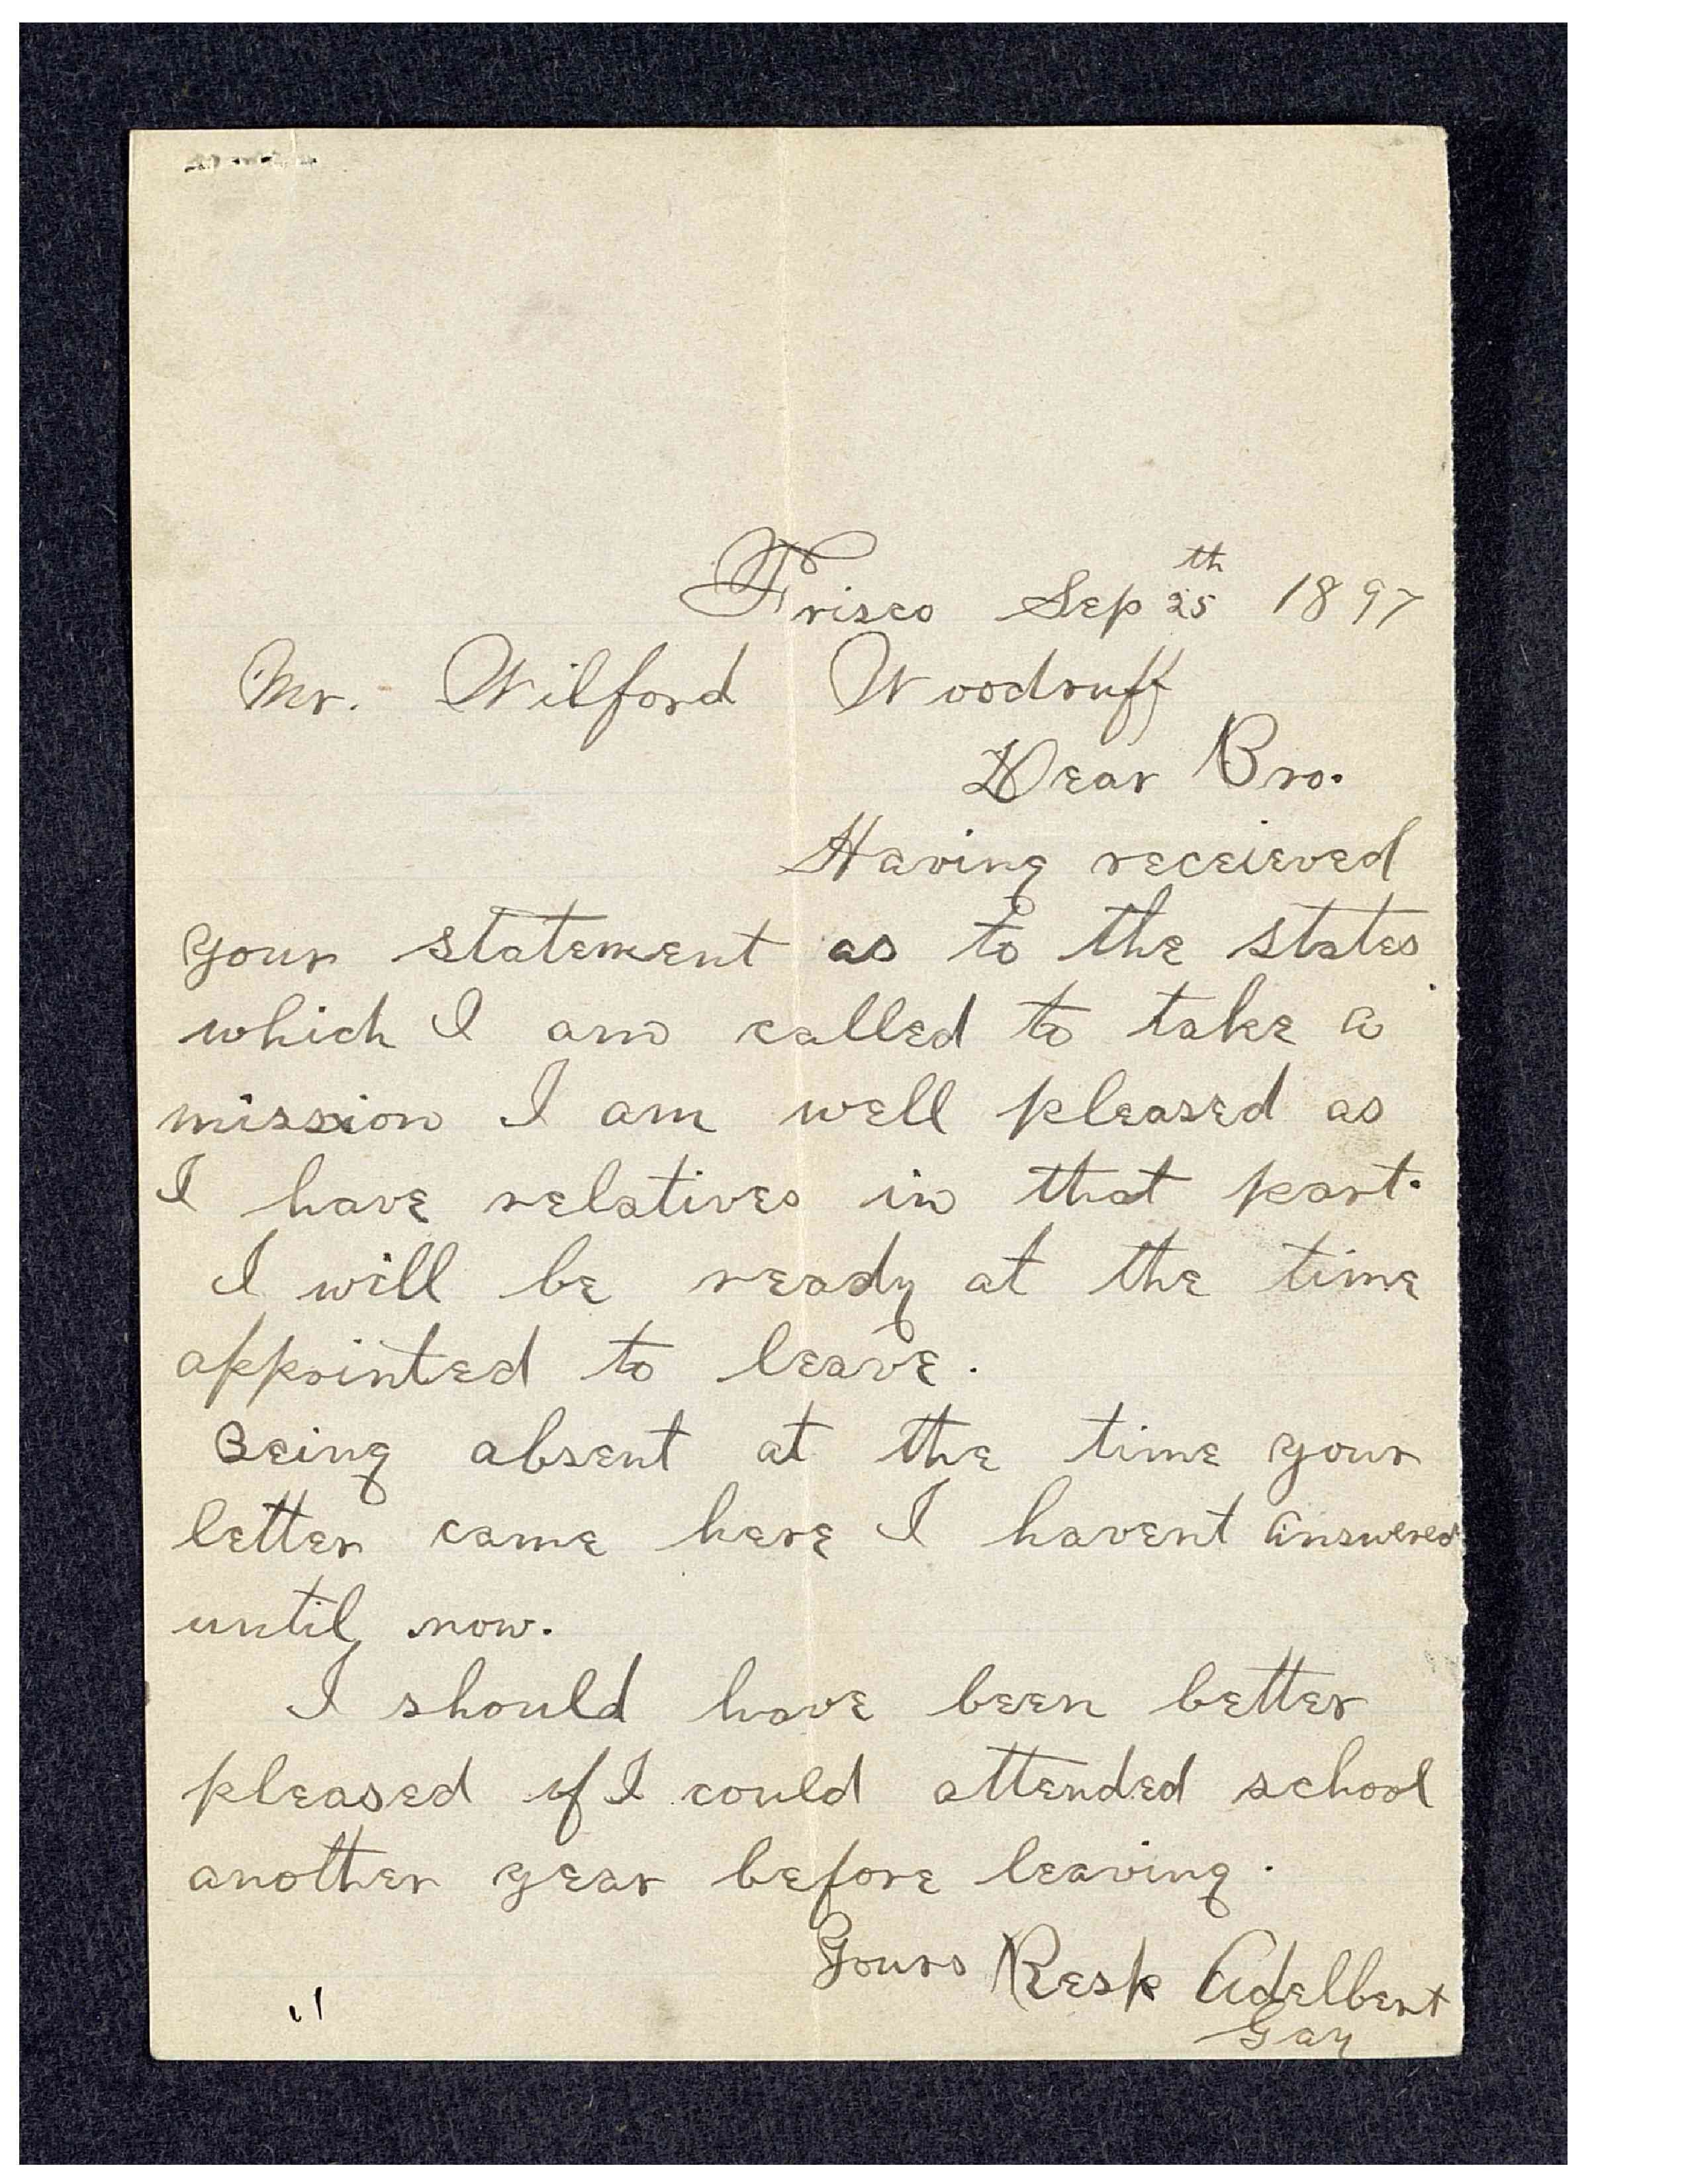 Frisco Sep 25th 1897
Mr. Wilford Woodruff
Dear Bro.
Having receieved
your statement as to the states
which I am called to take a
mission I am well pleased as
I have relatives in that part.
I will be ready at the time
appointed to leave.
Being absent at the time your
letter came here I havent answered
until now.
I should have been better
pleased if I could attended school
another year before leaving.
Yours Resp Adelbert
Gay